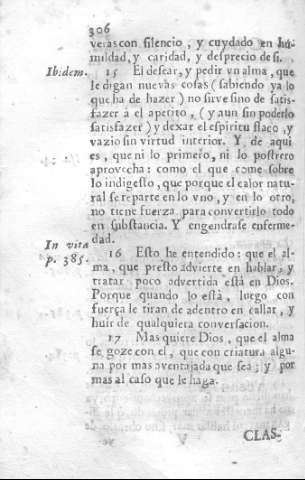 306
veras con silencio, y cuydado en hu-
mildad, y caridad, y desprecio de si.
Ib:dem. 15 El desear, y pedir vn alma, que
le digan nuevas cosas (sabiendo ya lo
que ha de hazer) no sirve sino de satis-
fazer á el apetito, (y aun sin poderlo
satisfazer) y dexar el espiritu flaco, y
vazio sin virtud interior. Y de aqui
es, que ni lo primero, ni lo postrero
aprovecha: como el que come sobre
lo indigesto, que porque el calor natu-
ral se reparte en lo vno, y en lo otro,
no tiene fuerza para convertirlo todo
en substancia. Y engendrase enferme-
dad.
In vita
p. 385.
16 Esto he entendido: que el al-
ma, que presto advierte en hablar, y
tratar poco advertida está en Dios.
Porque quando lo está, luego con
fuerça le tiran de adentro en callar, y
huir de qualquiera conversacion.
17 Mas quiere Dios, que el alma
se goze con el, que con criatura algu-
na por mas aventajada que sea; y por
mas al caso que le haga.
CLAS-